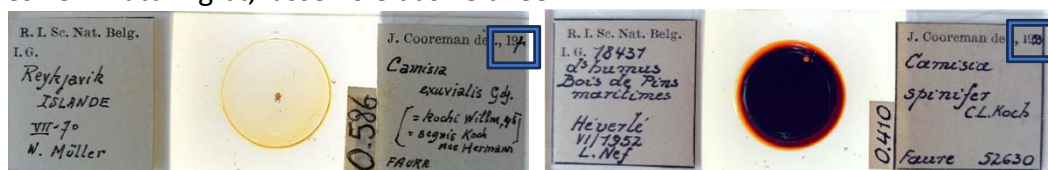 R. I. Sc. Nat. Belg.
I.G.
Reykjavik
ISLANDE
VII-70
W. Müller
0.586
J. Cooreman
Camisia
exuvialis
= Kochi Willm,
= segnis Koch
nec Hermann
FAURE
R. I. Sc. Nat. Belg.
I. G. 18437
ds humus
Bois de Pins
maritimes
Héverlé
VI/1952
L. Nef
0.410
J. Cooreman
Camisia
spinifer
C.L. Koch
Faure 52630